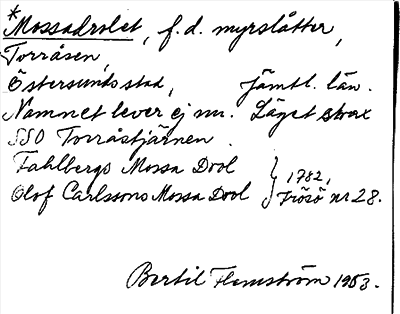 * Mossadrolet, f.d. myrslåtter,
Torråsen,
Östersunds stad, Jämtl. län.
Namnet lever ej nu. Läget strax
SSO Torråstjärnen.
Fahlbergs Mossa Drol } 1782,
Olof Carlssons Mossa Drol } Frösö nr 28.
Bertil Flemström 1953.